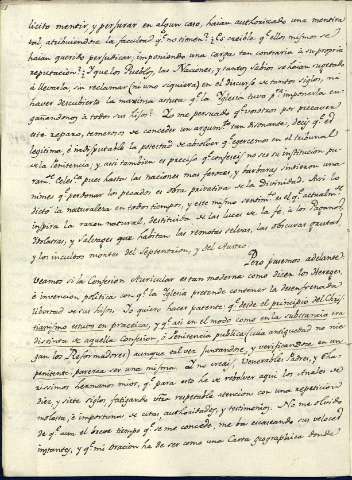 licito mentir, y perjurar en algun caso, haian authorizado una mentira
tal, atribuiendose la facultad q.e no tienen? Es creible q.e ellos mismos se
haian querido perjudicar, imponiendo una carga tan contraria à su propria
reputacion? Y que los Pueblos, las Naciones, y tantos sabios se haian sugetado
à llevarla, sin reclamar (ni uno siquiera) en el discurso de tantos siglos, ni
haver descubierto la maxima astuta q.e la Iglesia tuvo p.a imponerla en-
gañandonos à todos sus hijos? Yo me persuado q.e vosotros por precaver
este reparo, temerosos de conceder un argum.to tan disonante, decis q.e es
legitima, è indisputable la potestad de absolver q.e exercemos en el tribunal
de la Penitencia, y asi tambien es preciso q.e confeseis no ser su institucion pu-
ram.te Eclec.ca pues hasta las naciones mas feroces, y barbaras sintieron una-
nimes q.e perdonar los pecados es obra privativa de la Divinidad. Asi lo
dictò la naturaleza en todos tiempos, y este mismo sentim.to es el q.e actualm.te
inspira la razon natural, destituida de las luces de la fè, à los Paganos
Ydolatras, y Salvages que habitan las remotas selvas, las obscuras grutas,
y los incultos montes del Septentrion, y del Austro.
Pero pasemos adelante
Veamos si la Confesion Auricular es tan moderna como dicen los Hereges,
è invencion politica con q.e la Iglesia pretende contener la desenfrenada
libertad de sus hijos. Yo quiero hacer patente q.e desde el principio del Chris-
tianismo estuvo en practica, y q.e asi en el modo como en la substancia era
distinta de aquella Confesion, ò Penitencia publica (cuia antiguedad no nie-
gan los Reformadores) aunque tal vez juntandose, y verificandose en un
penitente, parezca ser una misma. Y no creais, Venerables Padres, y Cha-
rissimos hermanos mios, q.e para esto he de rebolver aqui los Anales de
diez, y siete siglos, fatigando v̄ra respetable atencion con una repeticion
molesta, è importuna de citas authoridades, y testimonios. No me olvido
de q.e aun el breve tiempo q.e se me concede, me ha escaseando sus veloces
instantes, y q.e mi Oracion ha de ser como una Carta geographica donde